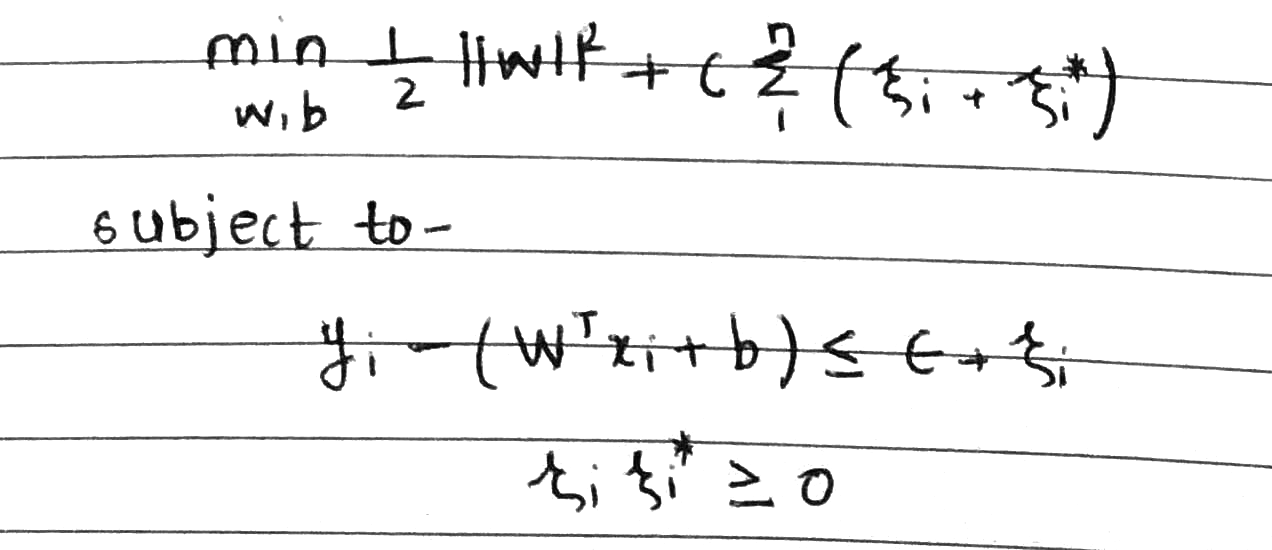 min 1/2 ||w||² + C Σ (ξi + ξi*)
w,b i n
subject to-
yi - (Wᵀxi + b) ≤ ϵ + ξi
ξi ξi* ≥ 0